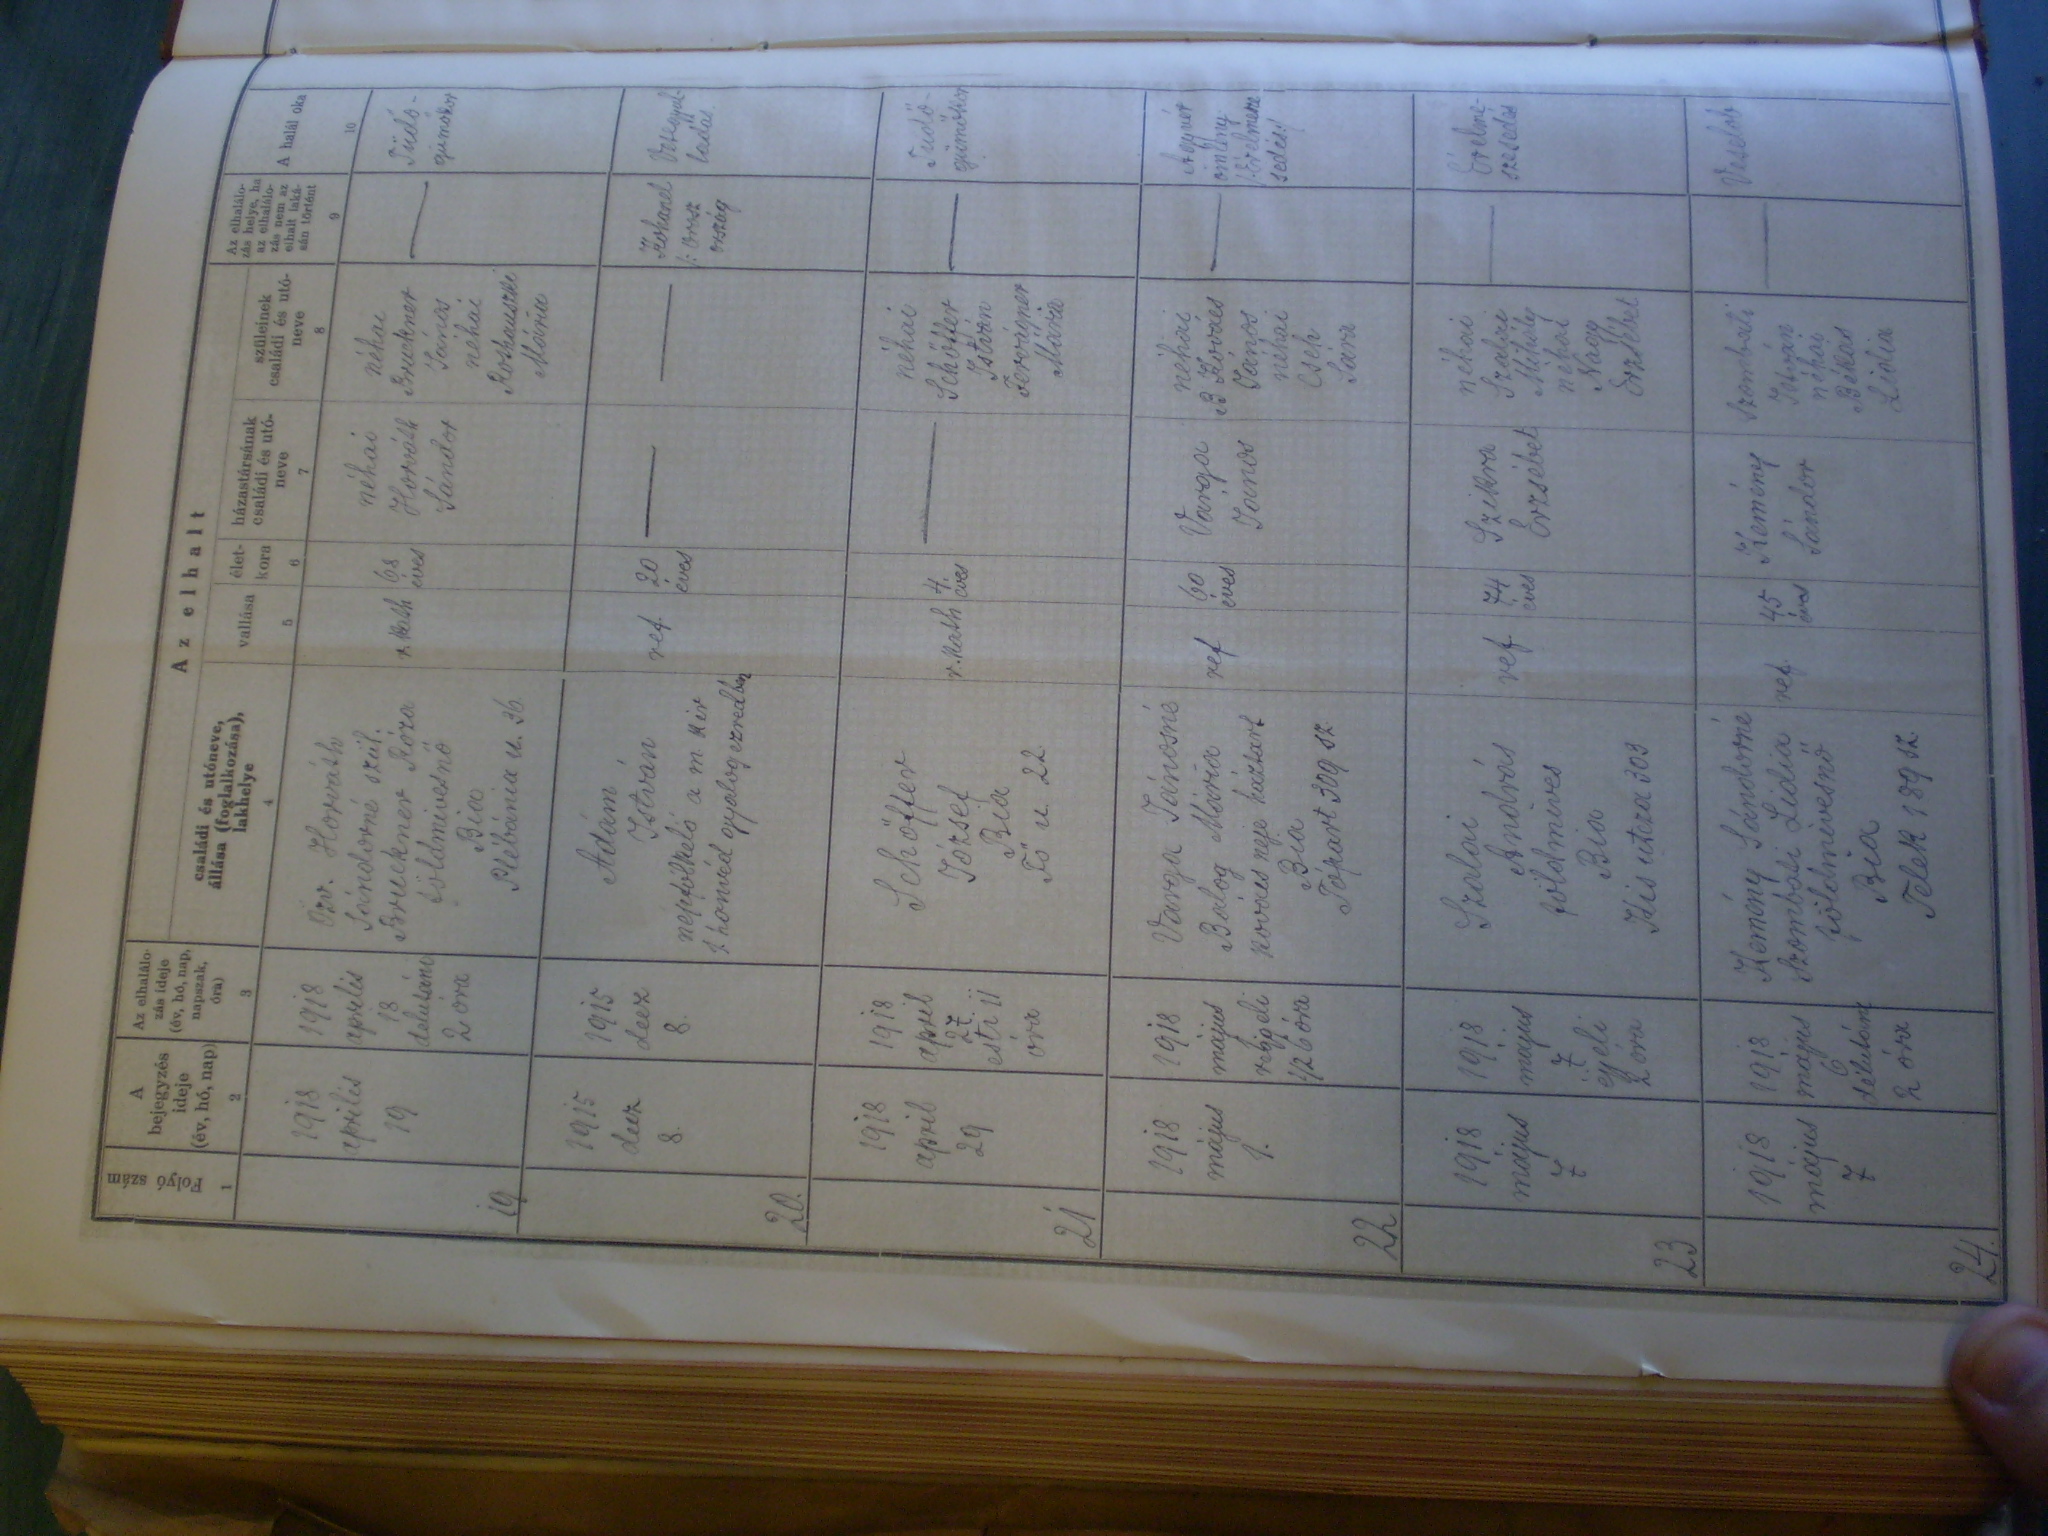 Az elhalt
Folyó szám
A bejegyzés ideje (év, hó, nap)
Az elhalálozás ideje (év, hó, nap, napszak, óra)
családi és utóneve, állása (foglalkozása), lakhelye
vallása
élet-kora
házastársának családi és utó-neve
szüleinek családi és utó-neve
Az elhalálo-zás helye, ha az elhalálo-zás nem az elhalt laká-sán történt
A halál oka
1
2
3
4
5
6
7
8
9
10
19
1918
április
19
1918
április
18
délutáni
2 óra
Özv. Horváth
Sándorné szül.
Bruckner Róza
földmívesnő
Bia
Plébánia u. 36
r. kath
68
éves
néhai
Horváth
Sándor
néhai
Bruckner
János
néhai
Mária
Tüdő-
gümőkór
20.
1915
decz
8.
1915
decz
8.
Ádám
István
népfölkelő a m kir
1 honvéd gyalogezredben
ref.
20
éves
21
1918
april
29
1918
april
27
esti 11
óra
Schöffer
József
Bia
Fő u. 22
r. kath
4.
éves
néhai
Schöffer
István
Mária
Tüdő-
gümőkór
22
1918
május
1.
1918
május
reggeli
1/2 6 óra
Varga Jánosné
Balog Mária
kovács neje háztart
Bia
Tópart 309 sz
ref
60
éves
Varga
János
néhai
B Kovács
János
néhai
Cseh
Sára
23
1918
május
7
1918
május
7
éjjeli
2 óra
Szalai
András
földmíves
Bia
Kis utcza 303
ref
74
éves
Szikra
Erzsébet
néhai
Szalai
Mihály
néhai
Nagy
Erzsébet
Érelme-
szesedés
24.
1918
május
7
1918
május
6
délutáni
2 óra
Kemény Sándorné
Szombati Lidia
földmívesnő
Bia
Telek 189 sz.
ref.
45
éves
Kemény
Sándor
Szombati
István
néhai
Békás
Lidia
Veselob